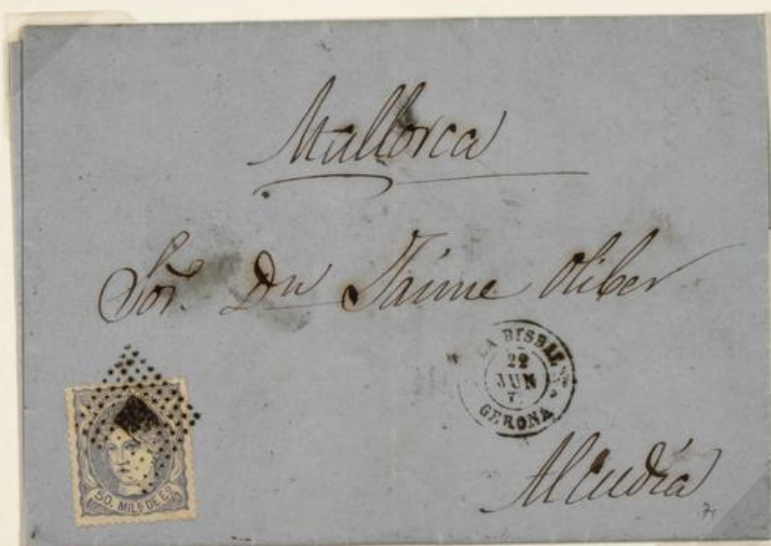 Mallorca
Sor. Dn Jaime Oliber
LA BISBAL
22
JUN
7
GERONA
Alcudia
71
50. MILS DE E.